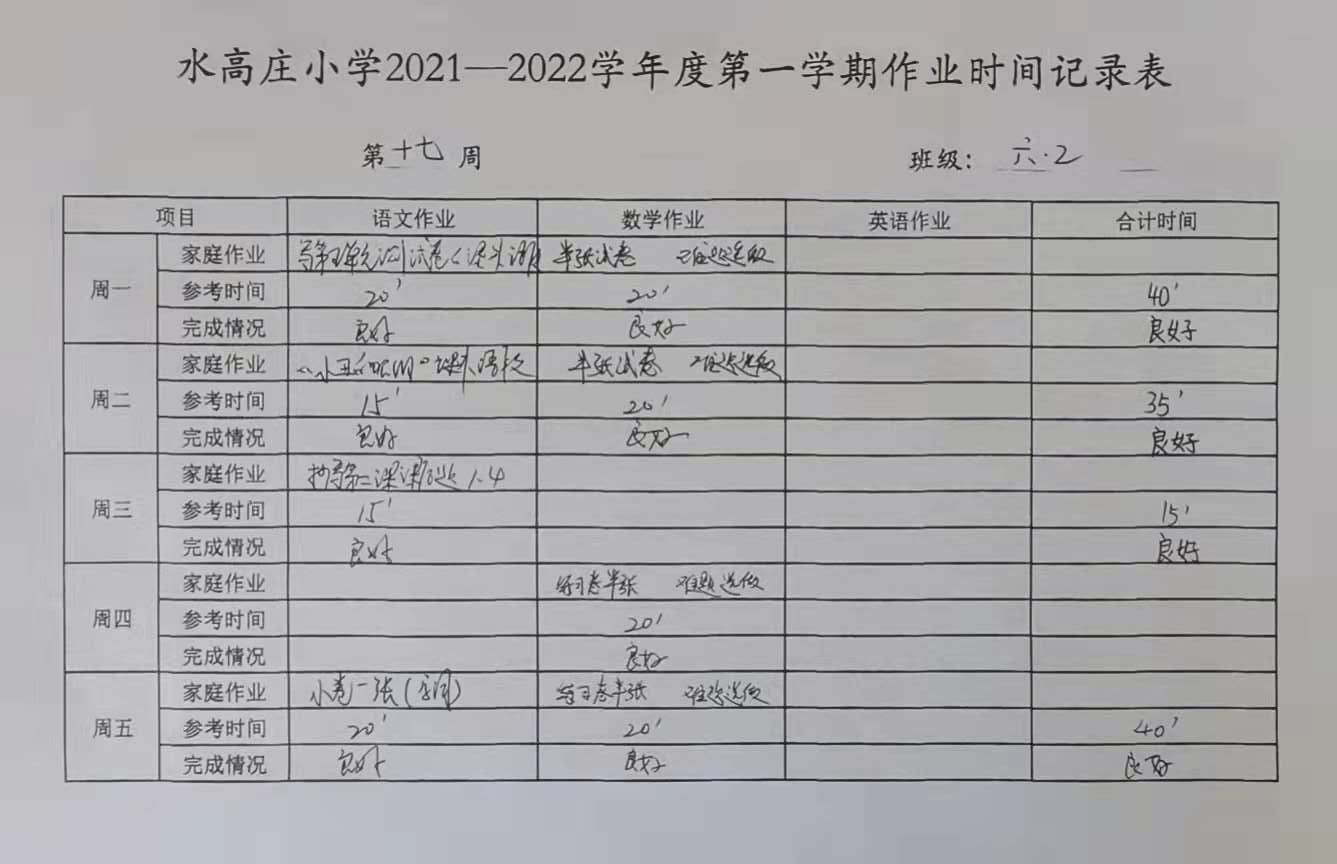 水高庄小学2021—2022学年度第一学期作业时间记录表
第 十七 周 班级: 六.2
项目 语文作业 数学作业 英语作业 合计时间
周一
家庭作业 写第 单元 试卷 半张试卷 难题选做
参考时间 20' 20' 40'
完成情况 良好 良好 良好
周二
家庭作业 半张试卷 难题选做
参考时间 15' 20' 35'
完成情况 良好 良好 良好
周三
家庭作业 抄写第二课 1-4
参考时间 15' 15'
完成情况 良好 良好
周四
家庭作业 练习卷半张 难题选做
参考时间 20'
完成情况 良好
周五
家庭作业 小卷一张(字词) 练习卷半张 难题选做
参考时间 20' 20' 40'
完成情况 良好 良好 良好